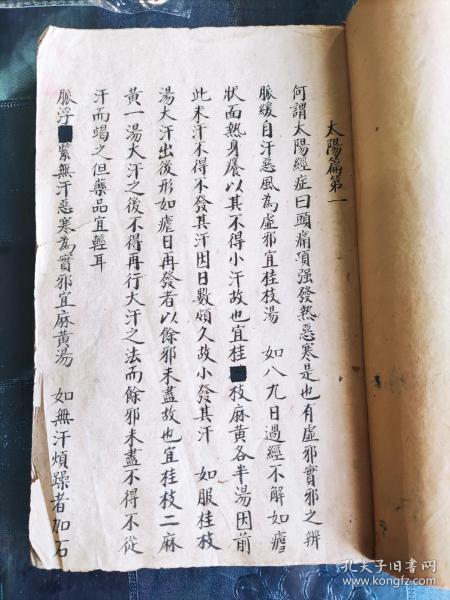 太陽篇第一
何謂太陽經症曰頭痛項强發熱惡寒是也有虛邪實邪之辨
脈緩自汗惡風為虛邪宜桂枝湯 如八九日過經不解如瘧
狀面熱身癢以其不得小汗故也宜桂枝麻黃各半湯因前
此未汗不得不發其汗因日數頗久故小發其汗 如服桂枝
湯大汗出後形如瘧日再發者以餘邪未盡故也宜桂枝二麻
黃一湯大汗之後不得再行大汗之法而餘邪未盡不得不從
汗而竭之但藥品宜輕耳
脈浮緊無汗惡寒為實邪宜麻黃湯 如無汗煩躁者加石
孔夫子旧书网
www.kongfz.com